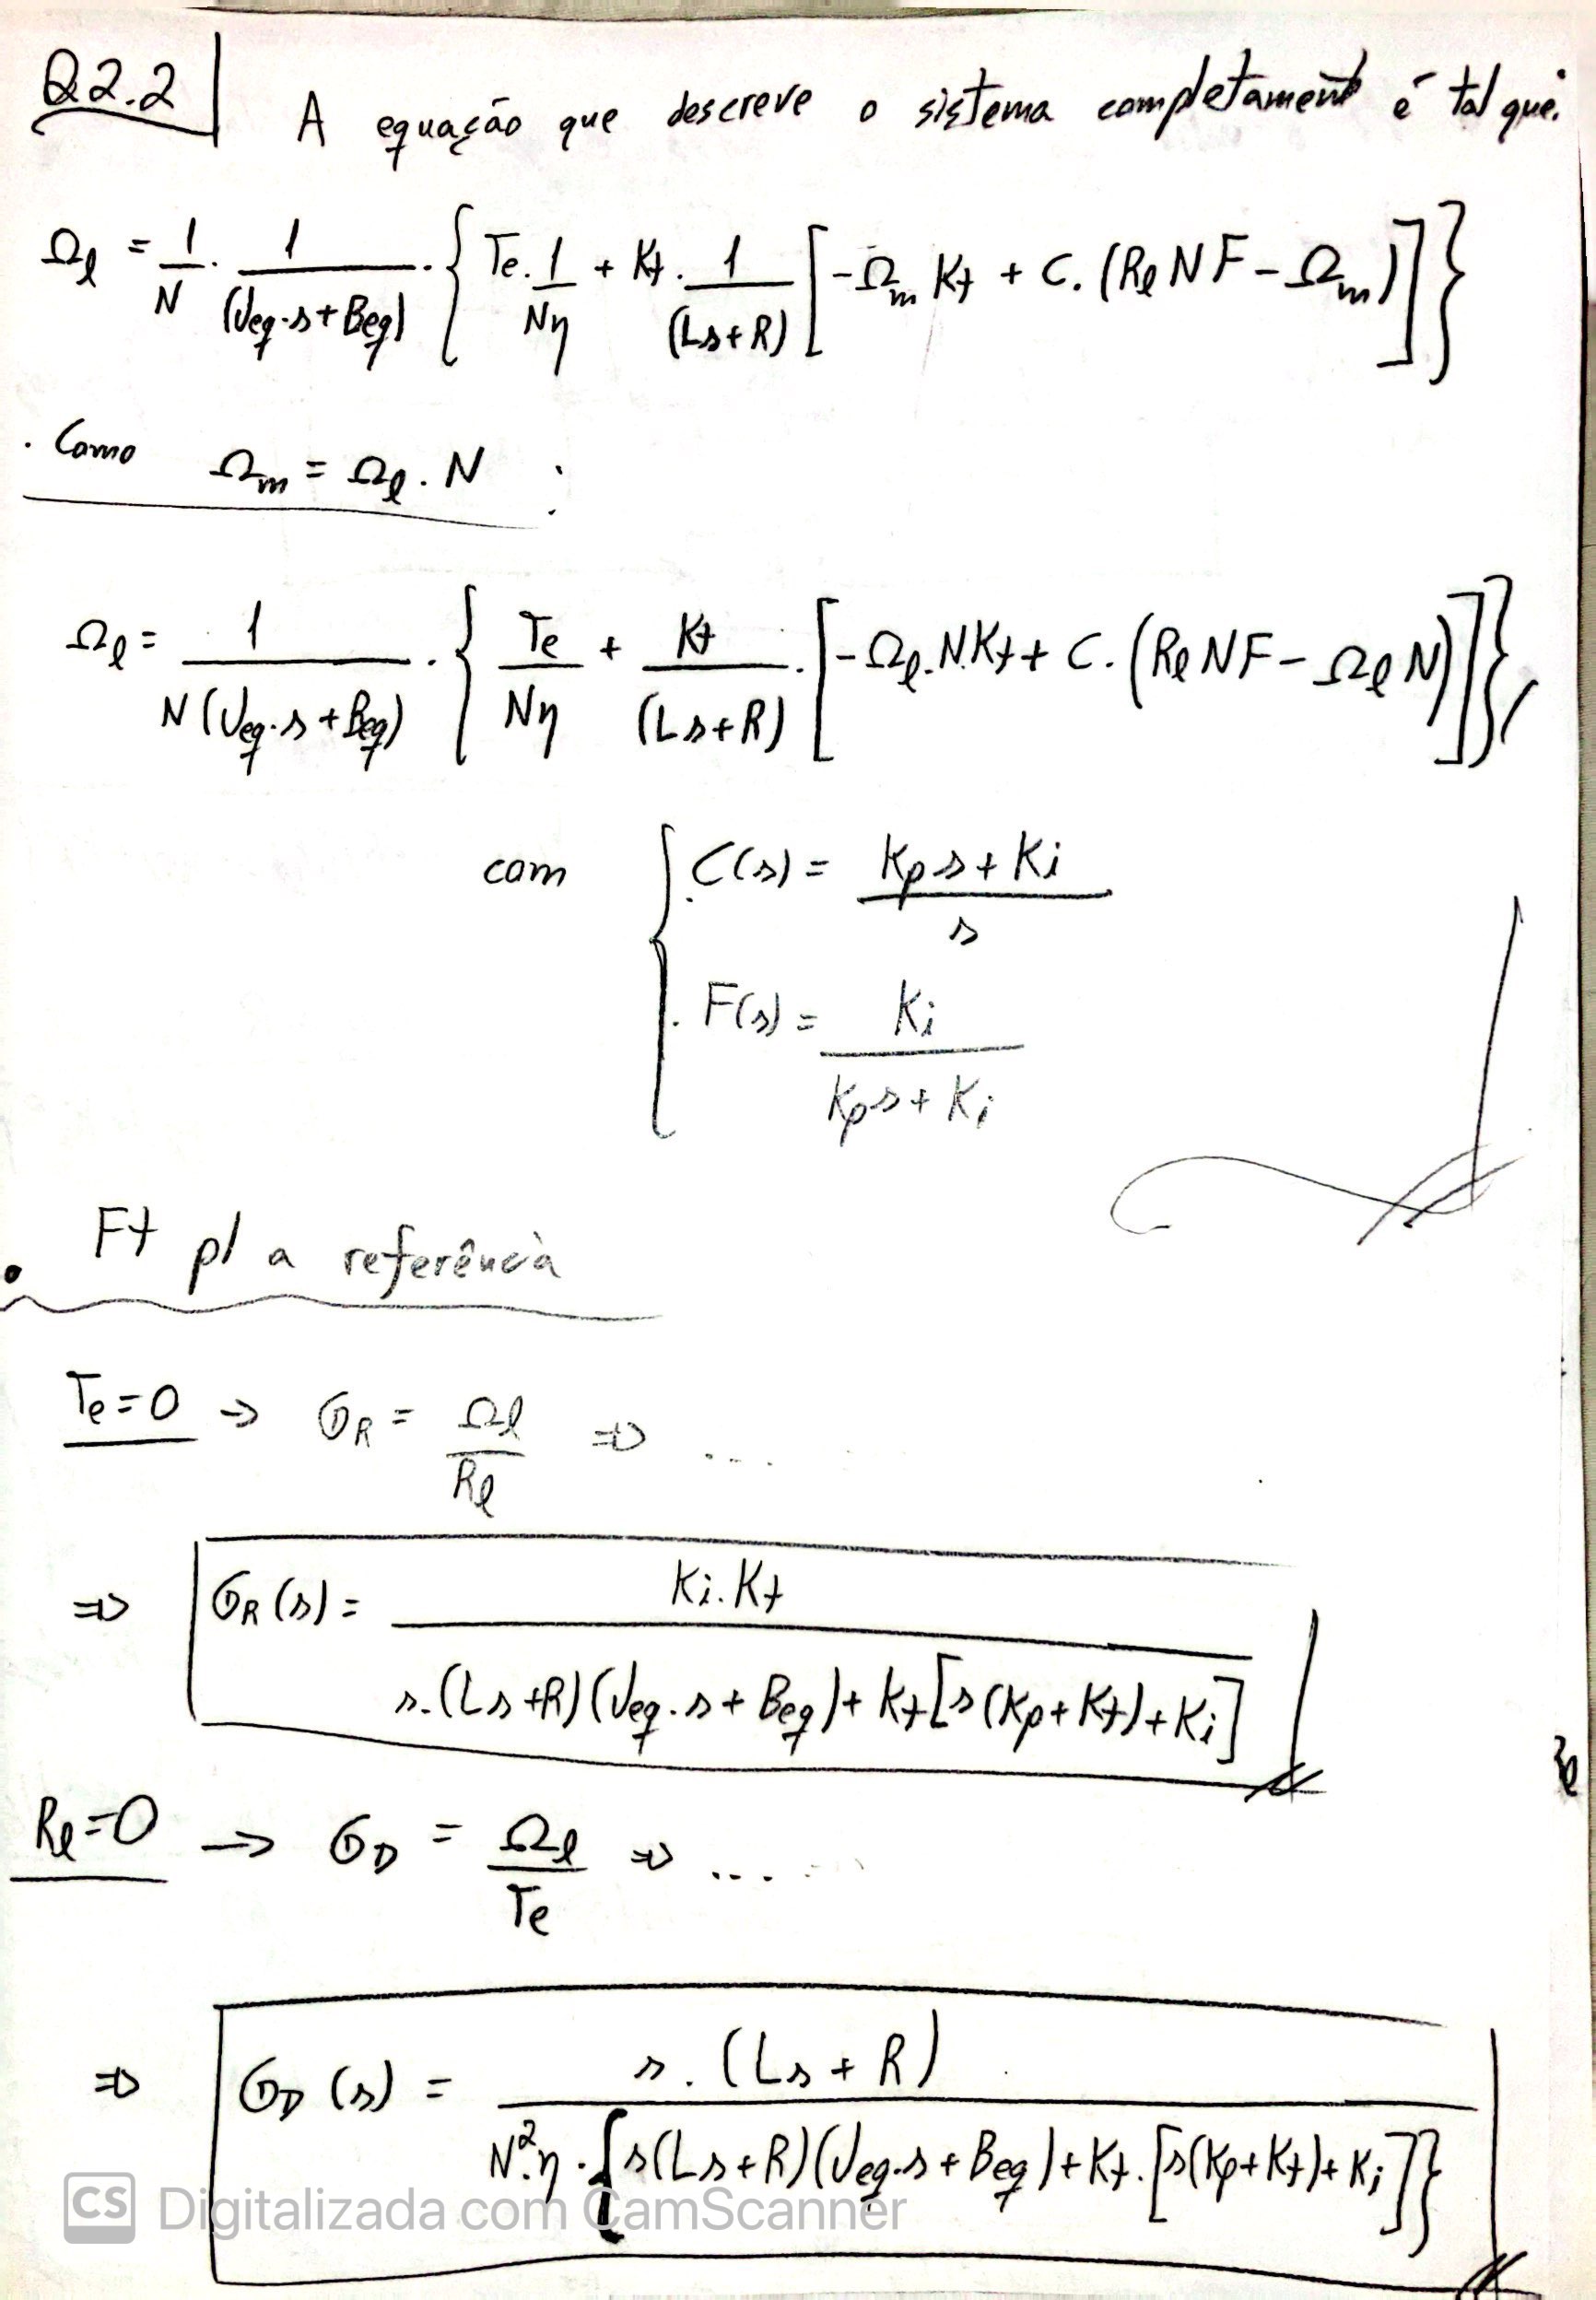 Q2.2 | A equação que descreve o sistema completament é tal que:
Ωl = 1/N · 1/(Jeq·s + Beq) · { Te · 1/(Nη) + Kt · 1/(Ls + R) [ -Ωm Kt + C · (Rl N F - Ωm) ] }
· Como Ωm = Ωl · N :
Ωl = 1/(N(Jeq·s + Beq)) · { Te/(Nη) + Kt/(Ls + R) · [ -Ωl · N · Kt + C · (Rl N F - Ωl N) ] },
com { · C(s) = (Kp s + Ki)/s
· F(s) = Ki/(Kp s + Ki)
· Ft p/ a referência
Te = 0 → GR = Ωl/Rl ⇒ ....
⇒ GR(s) = Ki · Kt / (s · (Ls + R)(Jeq · s + Beq) + Kt[s(Kp + Kt) + Ki])
Rl = 0 → GD = Ωl/Te ⇒ ....
⇒ GD(s) = s · (Ls + R) / (N² · η · {s(Ls + R)(Jeq·s + Beq) + Kt · [s(Kp + Kt) + Ki]})
CS Digitalizada com CamScanner